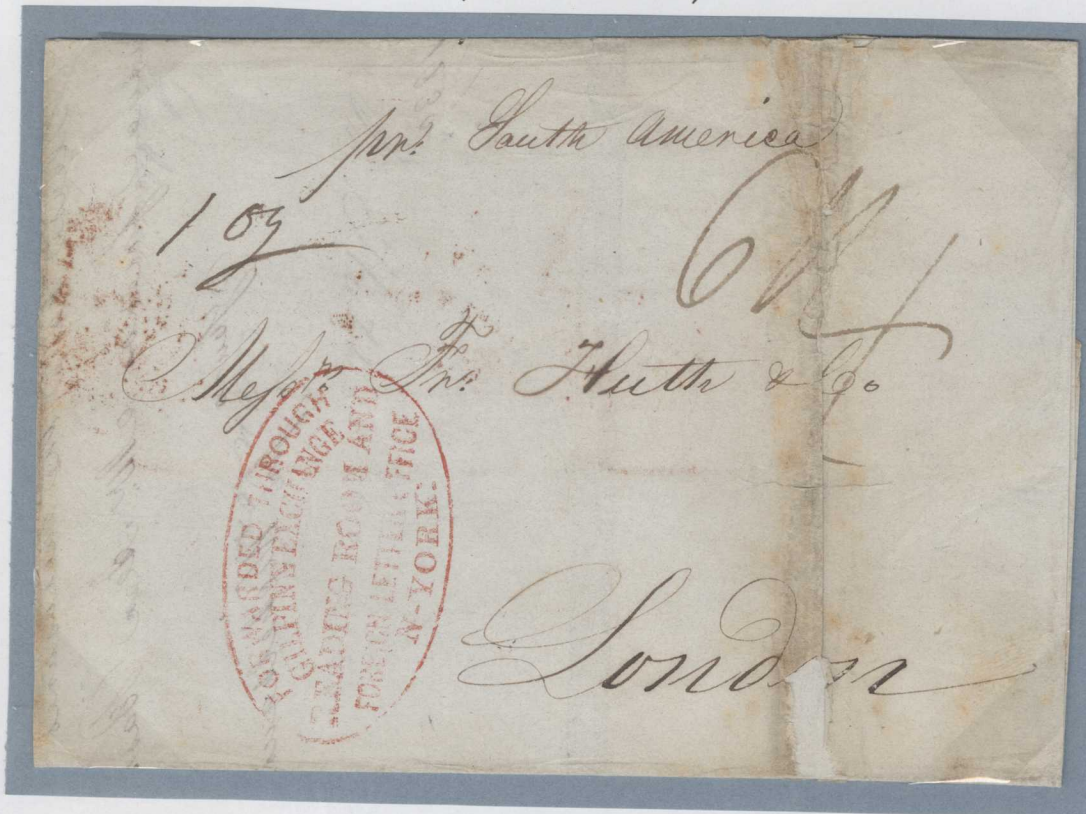 pr. South America
1 oz
6/4
Messrs. Fr. Huth & Co
London
FORWARDED THROUGH
GILPIN'S EXCHANGE
READING ROOM AND
FOREIGN LETTER OFFICE
N-YORK.